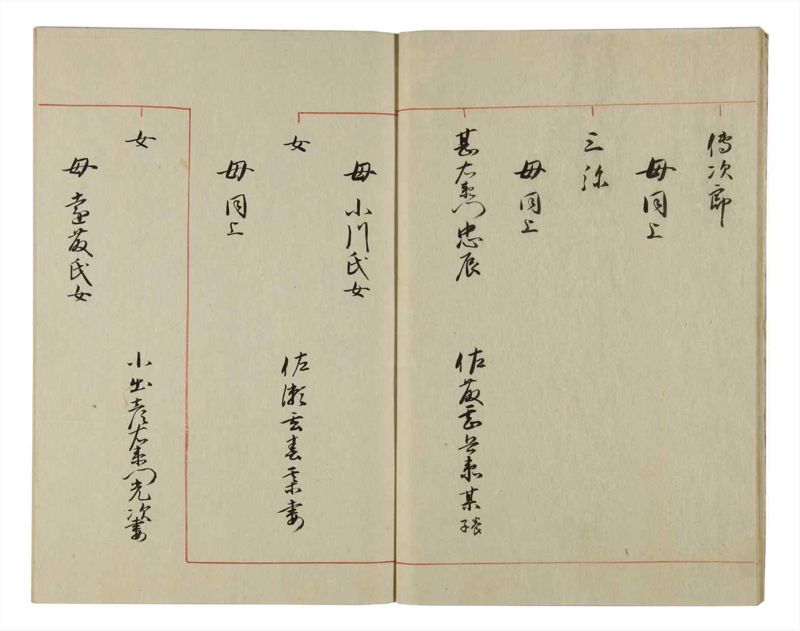 傳次郎
母同上
三弥
母同上
甚右衛門忠辰
佐藤 兵衛某子
母小川氏女
女
佐瀬玄 某妻
母同上
女
小出彦右衛門光次妻
母遠藤氏女